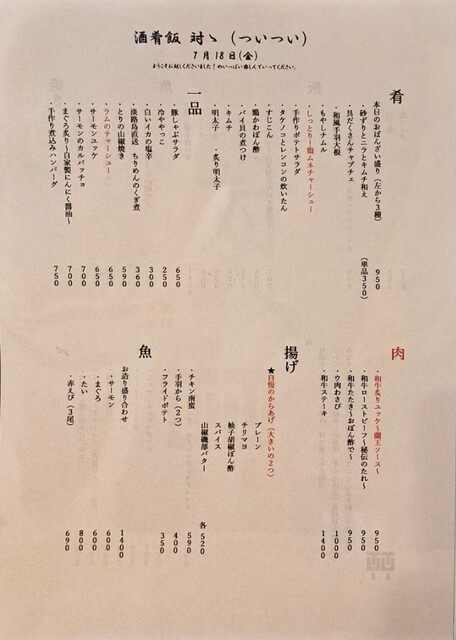 酒肴飯 対ゝ（ついつい）
7月18日(金)
ようこそお越しくださいました！めいっぱい楽しんでいってください。
肴
本日のおばんざい盛り（左から3種） 950
・砂ずりとニラとキムチ和え （単品350）
・具だくさんチャプチェ
・和風手羽大根
・もやしナムル
・しっとり！鶏ムネチャーシュー
・手作りポテトサラダ
・タケノコとレンコンの炊いたん
・すじこん
・鶏かわぽん酢
・バイ貝の煮つけ
・キムチ
・明太子 ・炙り明太子
一品
・豚しゃぶサラダ 650
・冷ややっこ 250
・白いイカの塩辛 300
・淡路島直送 ちりめんのくぎ煮 360
・とりの山椒焼き 590
・ラムのチャーシュー 650
・サーモンユッケ 650
・サーモンのカルパッチョ 700
・まぐろ炙り～自家製にんにく醤油～ 700
・手作り煮込みハンバーグ 750
肉
・和牛炙りユッケ～蘭王ソース～ 950
・和牛ローストビーフ～秘伝のたれ～ 950
・和牛たたき～おばん酢で～ 950
・ウ肉わさび 1000
・和牛ステーキ 1400
揚げ
★自慢のからあげ（大きいの2つ）
プレーン
チリマヨ
柚子胡椒ぽん酢
スパイス
山椒磯部バター 各520
・チキン南蛮 590
・手羽から（2つ） 400
・フライドポテト 350
魚
お造り盛り合わせ 1400
・サーモン 600
・まぐろ 600
・たい 800
・赤えび（3尾） 690